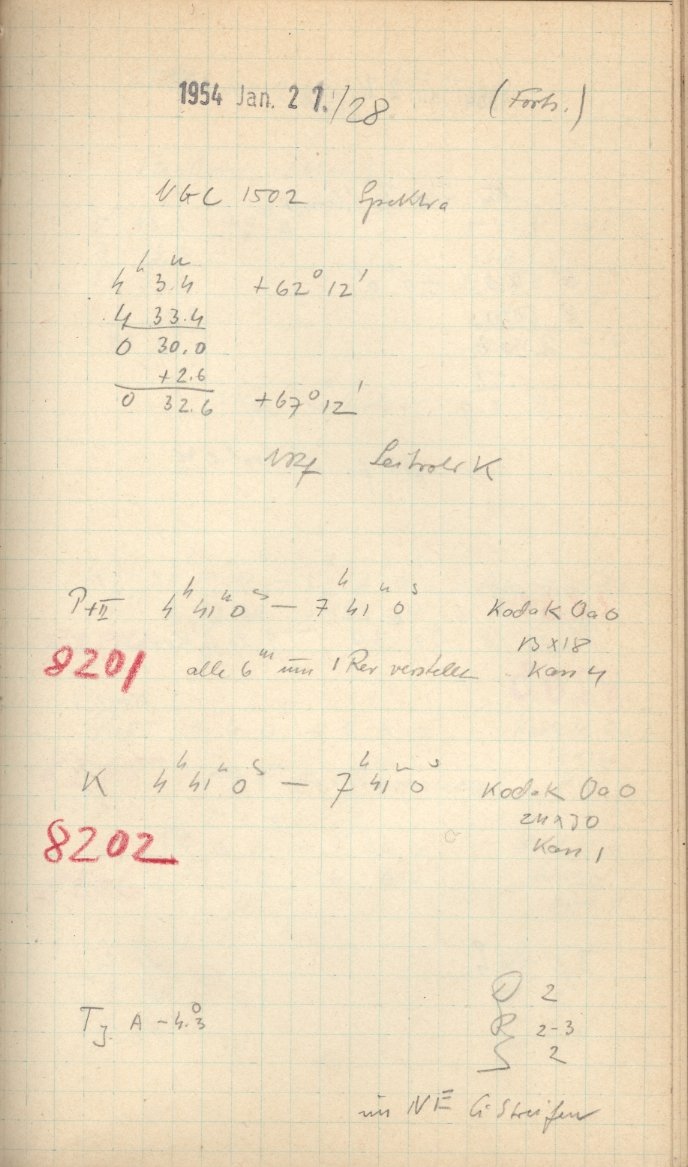 1954 Jan. 27./28 (Forts.)
NGC 1502 Spektra
4h 3m.4 +62° 12'
4 33.4
0 30.0
+2.6
0 32.6 +67° 12'
K
P+II 4h 41m 0s — 7h 41m 0s Kodak OaO
13x18
8201 alle 6m um 1 Rev verstellt Kass 4
K 4h 41m 0s — 7h 41m 0s Kodak OaO
24x30
8202 Kass 1
A -4.°3
D 2
R 2-3
S 2
im NE Ci Streifen